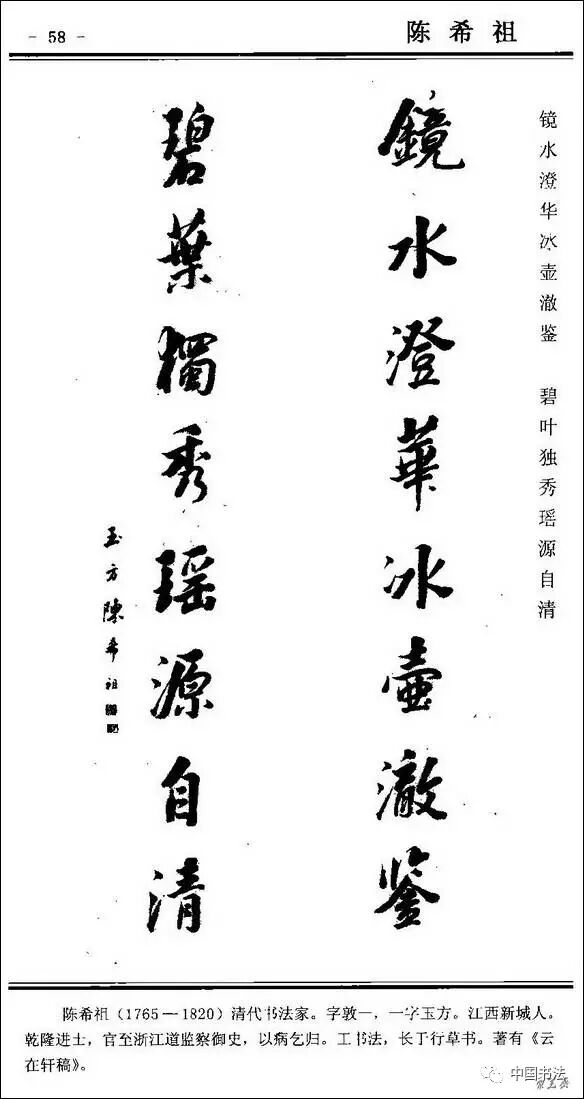 - 58 -
陈希祖
镜水澄华冰壶澈鉴 碧叶独秀瑶源自清
鏡水澄華冰壺澈鋻
碧葉獨秀瑶源自清
玉方陳希祖
陈希祖（1765—1820）清代书法家。字敦一，一字玉方。江西新城人。
乾隆进士，官至浙江道监察御史，以病乞归。工书法，长于行草书。著有《云
在轩稿》。
中国书法